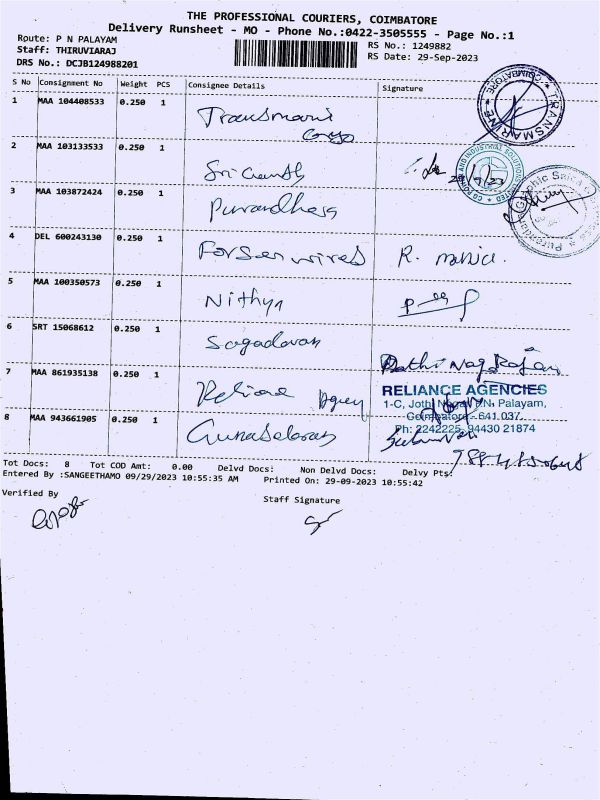 THE PROFESSIONAL COURIERS, COIMBATORE
Delivery Runsheet - MO - Phone No.:0422-3505555 - Page No.:1
Route: P N PALAYAM
Staff: THIRUVIARAJ
DRS No.: DCJB124988201
RS No.: 1249882
RS Date: 29-Sep-2023
S No Consignment No Weight PCS Consignee Details Signature
1 MAA 104408533 0.250 1 Transmarine
TRANSMARINE * COIMBATORE *
2 MAA 103133533 0.250 1 Sriventh
3 MAA 103872424 0.250 1 Purandhara
4 DEL 600243130 0.250 1 Forseen wires R.
5 MAA 100350573 0.250 1 Nithya
6 SRT 15068612 0.250 1 Sagadevan
7 MAA 861935138 0.250 1 Reliance Agency
RELIANCE AGENCIES
1-C, Jothi Nagar, P.N. Palayam,
Coimbatore - 641 037.
Ph: 2242225, 94430 21874
8 MAA 943661905 0.250 1 Gunaselaran
Tot Docs: 8 Tot COD Amt: 0.00 Delvd Docs: Non Delvd Docs: Delvy Pts:
Entered By :SANGEETHAMO 09/29/2023 10:55:35 AM Printed On: 29-09-2023 10:55:42
Verified By
Staff Signature